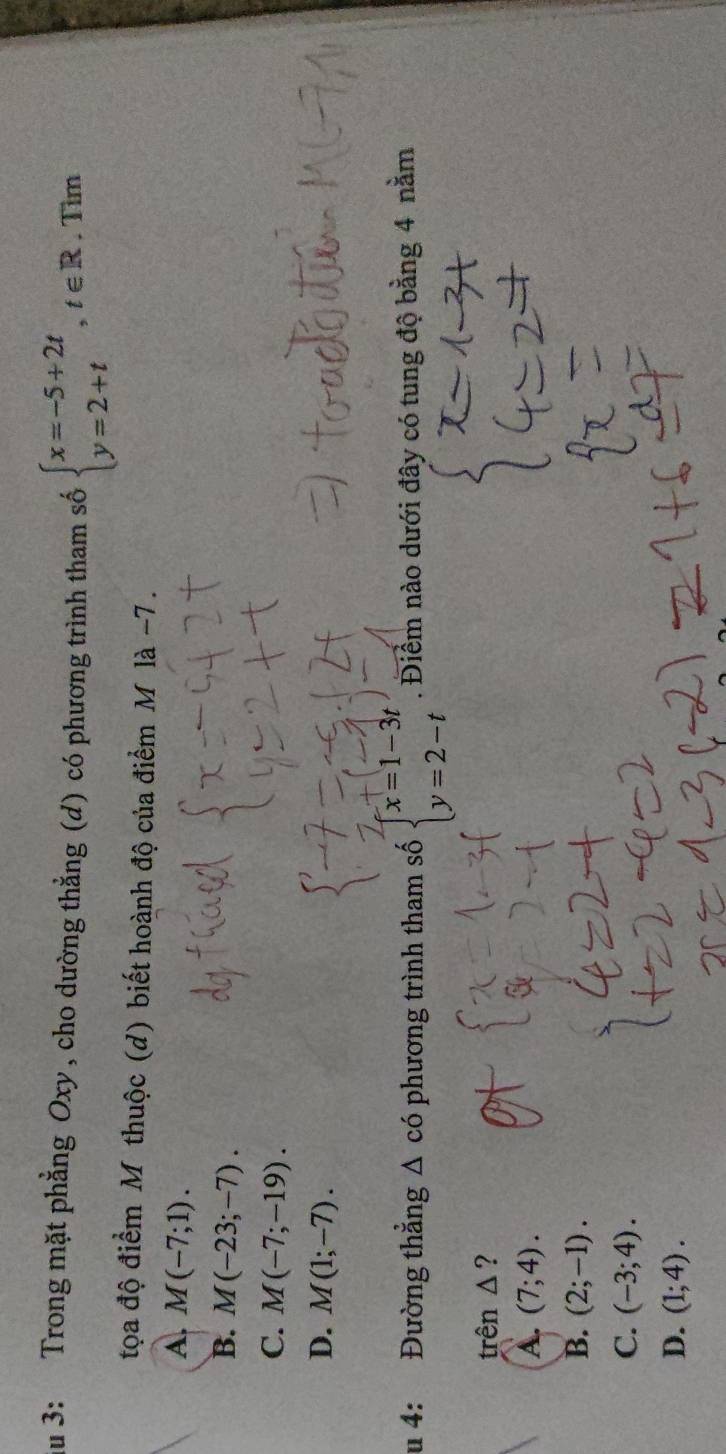 u 3: Trong mặt phẳng Oxy, cho dường thẳng (d) có phương trình tham số { x = -5 + 2t
y = 2 + t , t ∈ ℝ. Tìm
tọa độ điểm M thuộc (d) biết hoành độ của điểm M là -7.
A. M(-7;1).
B. M(-23;-7).
C. M(-7;-19).
D. M(1;-7).
{ x = -5 + 2t
y = 2 + t
{ -7 = -5 + 2t
2 + (-1) = 1
⇒ M(-7,1)
u 4: Đường thẳng Δ có phương trình tham số { x = 1 - 3t
y = 2 - t . Điểm nào dưới đây có tung độ bằng 4 nằm
trên Δ?
A. (7;4).
B. (2;-1).
C. (-3;4).
D. (1;4).
{ x = 1 - 3t
y = 2 - t
{ 4 = 2 - t
t = 2 - 4 = 2
x = 1 - 3(-2) = 1 + 6 = 7
{ x = 1 - 3t
4 = 2 - t
{ x =